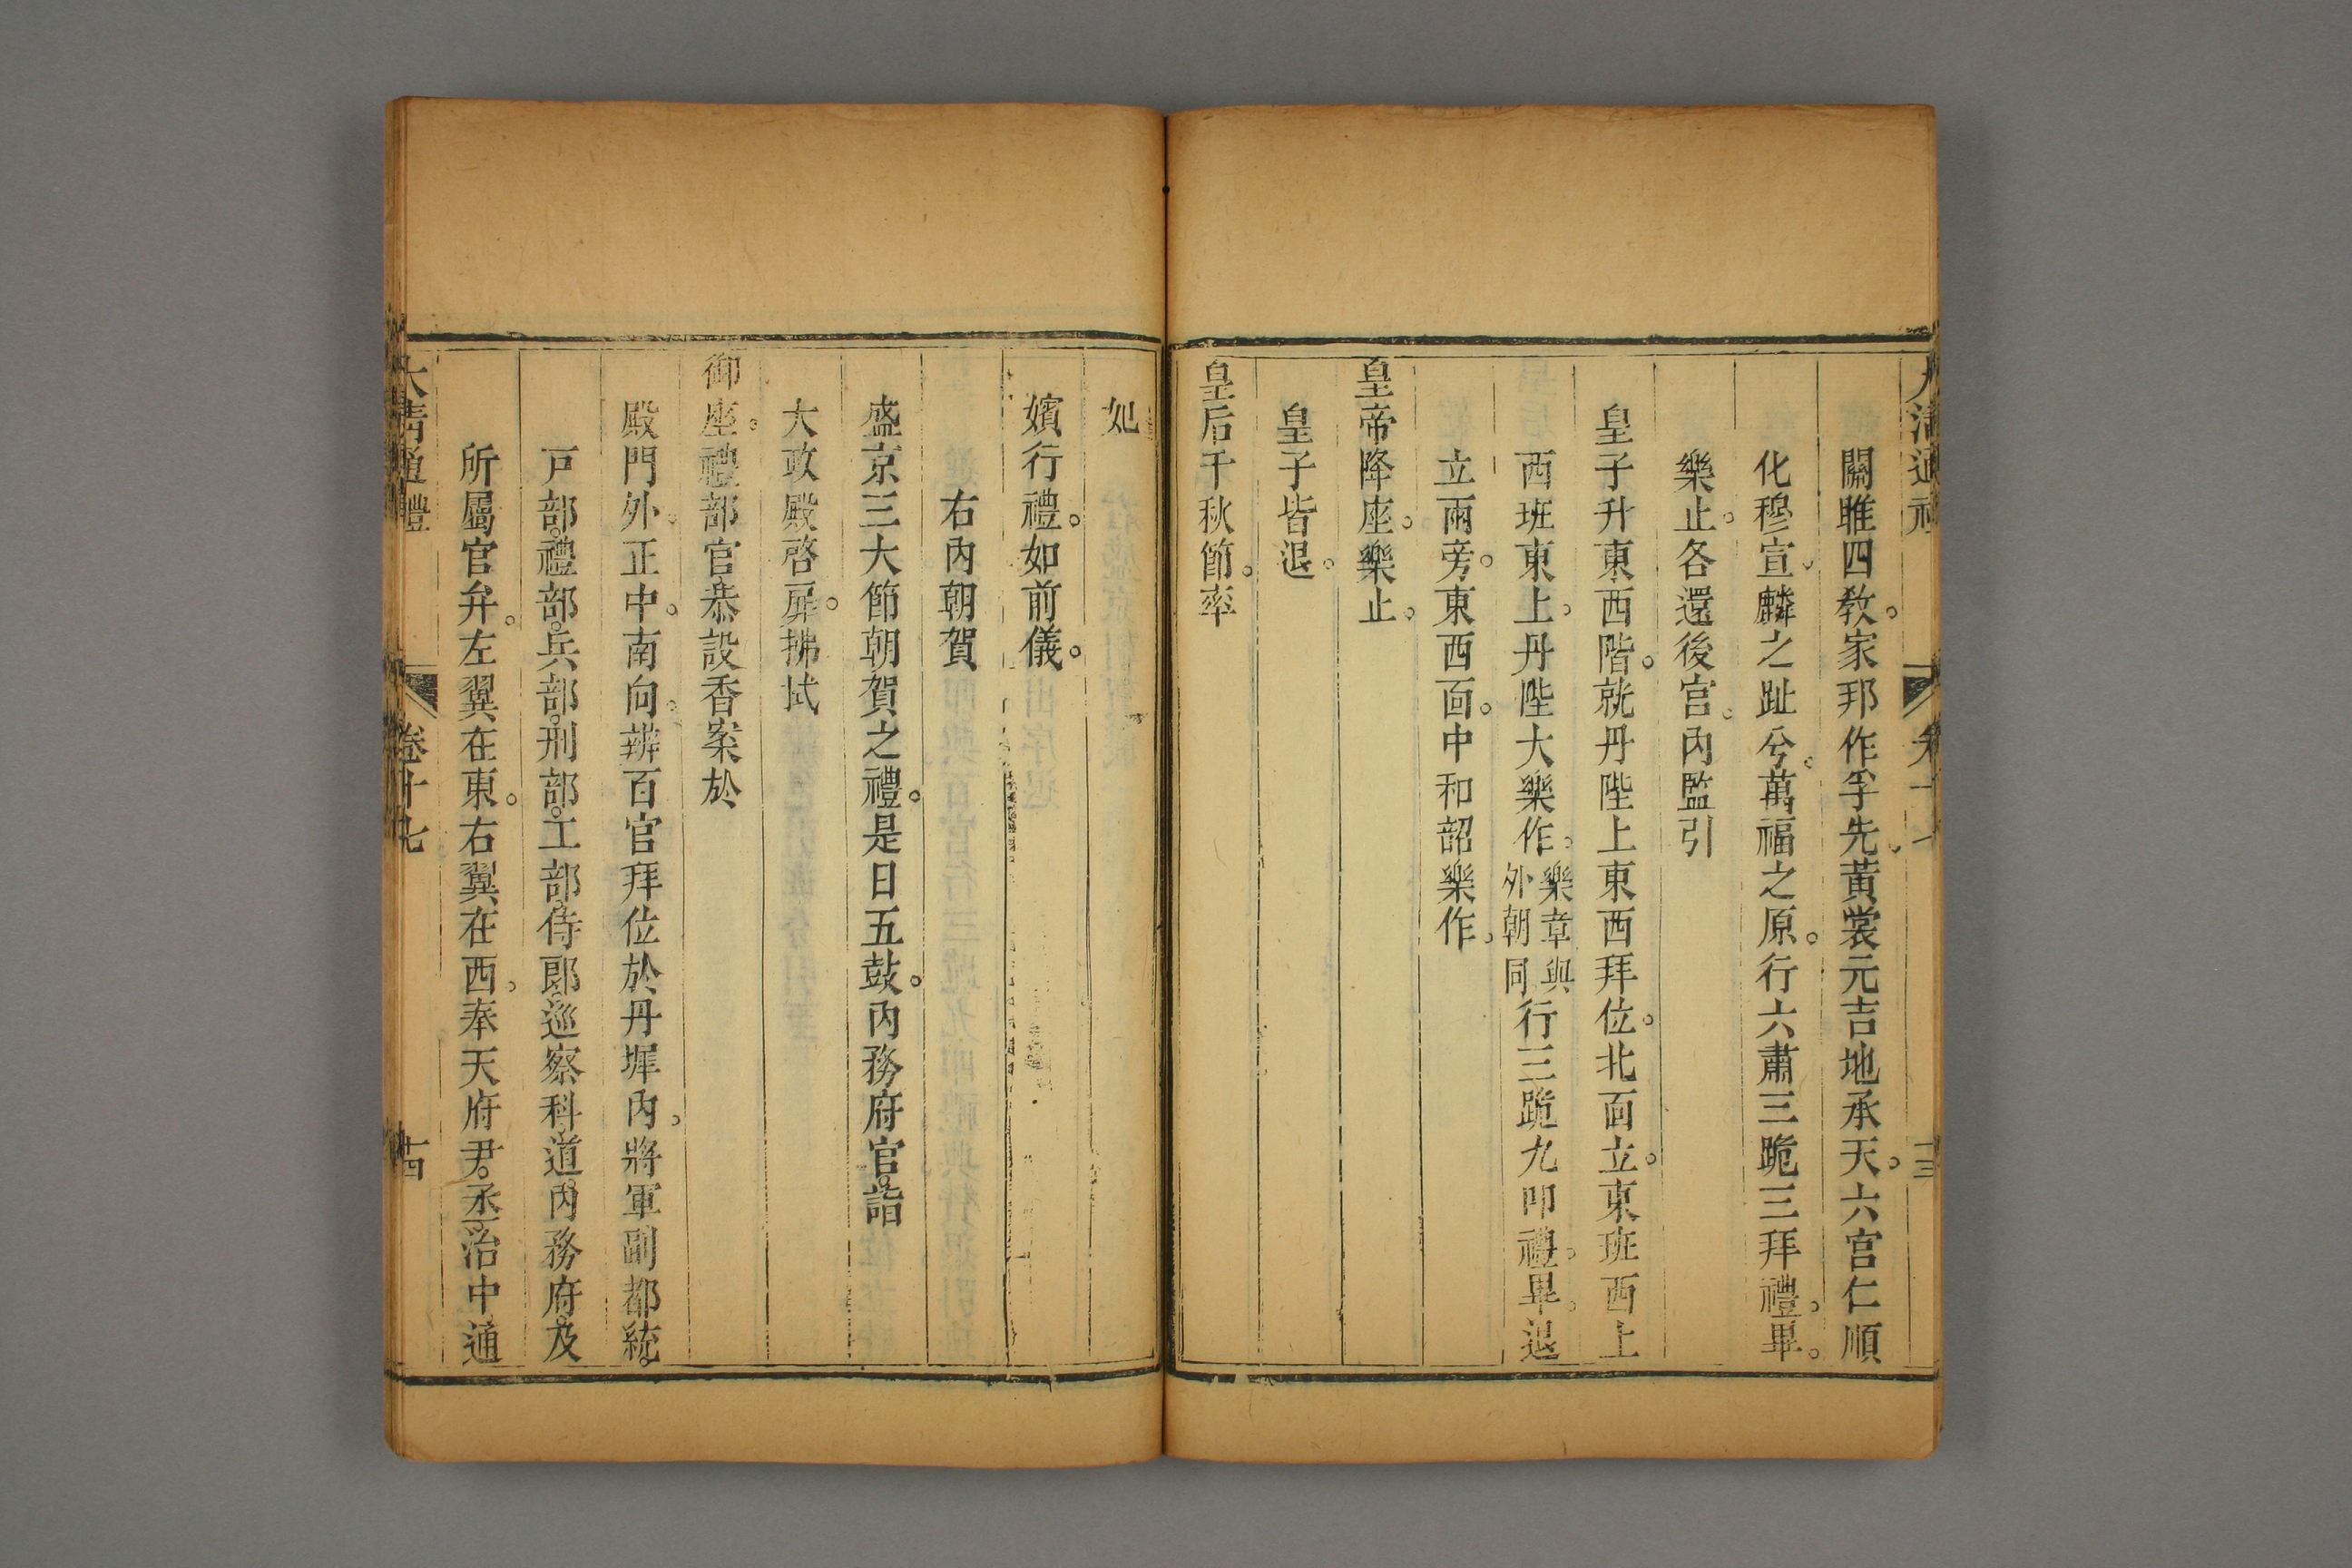 大清通禮 卷十七 十三
關雎四敎。家邦作孚先。黃裳元吉地承天。六宮仁順
化穆宣。麟之趾兮。萬福之原。行六肅三跪三拜禮。畢。
樂止。各還後宮。內監引
皇子升東西階。就丹陛上東西拜位。北面立。東班西上
西班東上。丹陛大樂作。樂章與外朝同行三跪九叩禮。畢。退
立兩旁。東西面。中和韶樂作。
皇帝降座。樂止。
皇子皆退。
皇后千秋節。率
妃
嬪行禮。如前儀。
右內朝賀
盛京三大節朝賀之禮。是日五鼓。內務府官。詣
大政殿啓扉。拂拭
御座。禮部官恭設香案於
殿門外。正中。南向。辨百官拜位於丹墀內。將軍副都統。
戸部。禮部。兵部。刑部。工部。侍郎。巡察科道。內務府。及
所屬官弁。左翼在東。右翼在西。奉天府尹。丞。治中。通
大清通禮 卷十七 十四